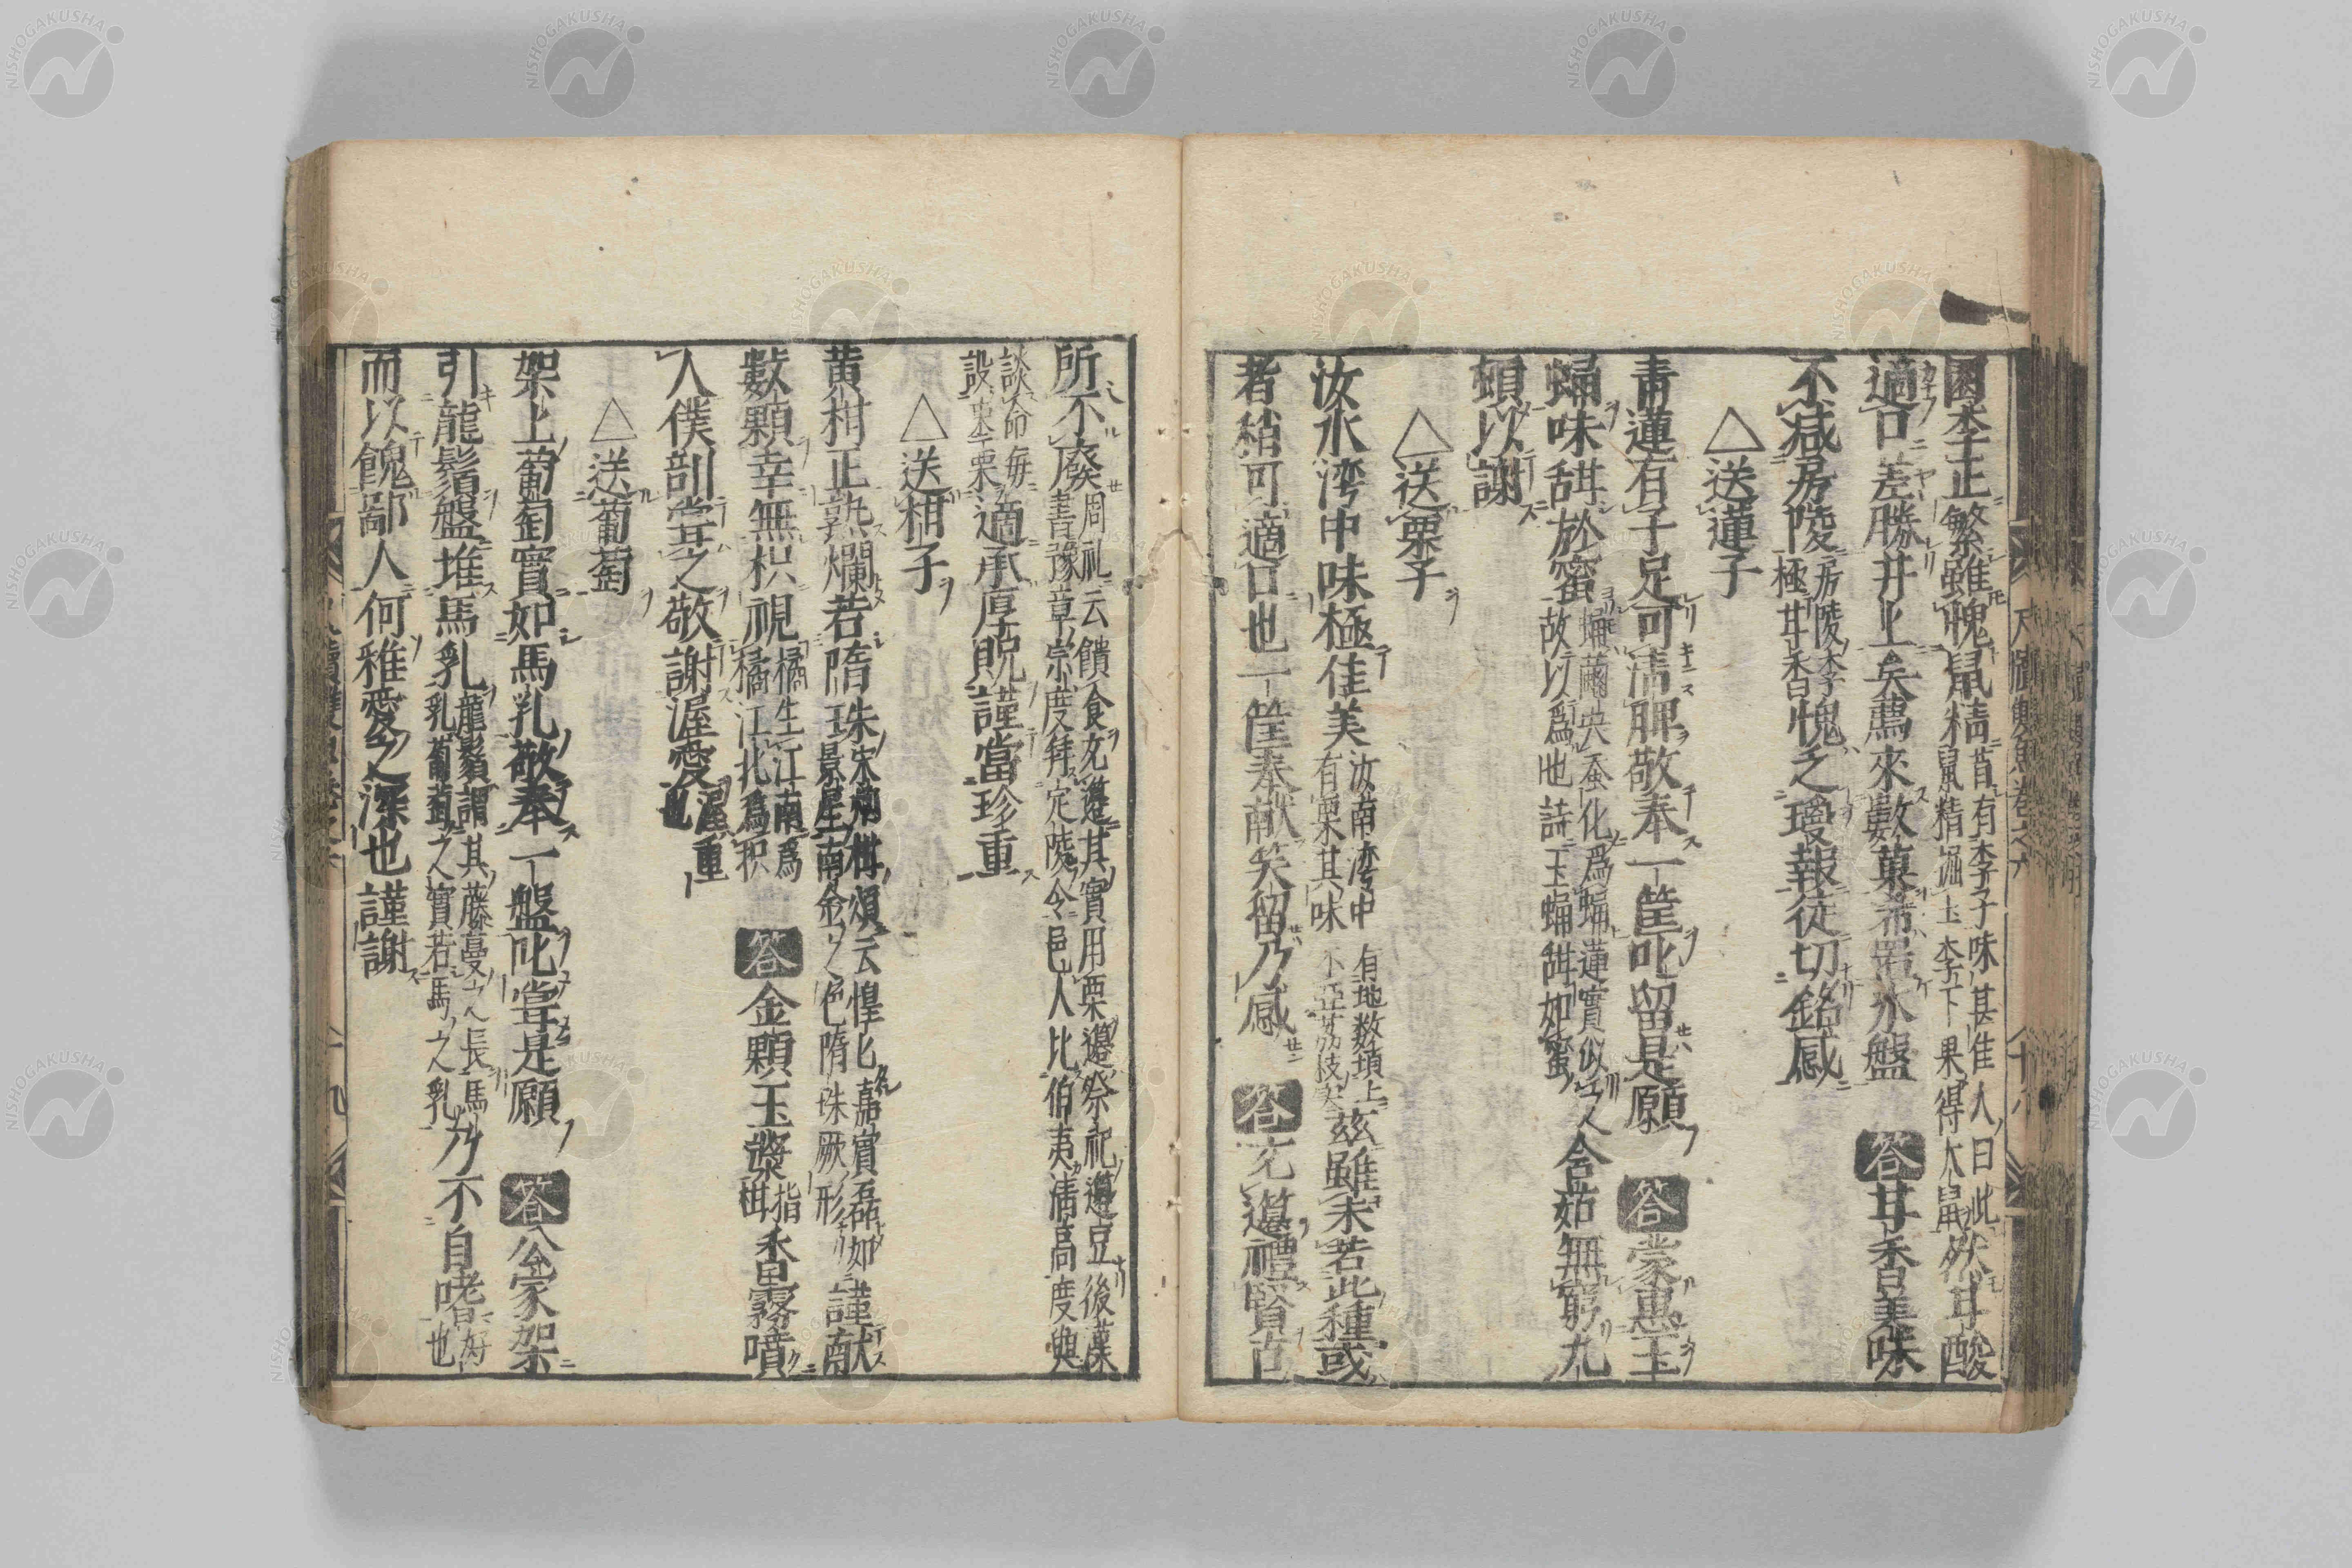 園李正繁雖愧鼠精昔有李子味甚佳人曰此鼠精掘土李下果得大鼠然甘酸
適口差勝井上矣薦來數菓希置氷盤 答 甘香美味
不減房陵房陵李極甘香愧乏瓊報徒切銘感
△送蓮子
青蓮有子足可清脾敬奉一筐叱留是願 答 蒙惠玉
蝻味甜於蜜故以爲也詩玉蝻甜如蜜含茹無窮九
頓以謝
△送栗子
汝水湾中味極佳美汝南湾中有栗其味有地数頃上茲雖未若此種或
者稍可適口也一筐奉献笑留乃感 答 充籩禮賢古
所不廢周礼云饋食充籩其實用栗籩祭祀籩豆後漢書豫章宗度拜定陵令邑人比伯夷清高度與
談命毎設枣栗適承厚貺謹當珍重
△送柑子
黄柑正熟爛若隋珠景星南金之色隋珠厥形嘉實磊如謹献
數顆幸無枳視橘生江南爲橘江北爲枳 答 金顆玉漿指柑香霧噴
人僕剖甞之敬謝渥愛渥重也
△送葡萄
架上葡萄實如馬乳敬奉一盤叱甞是願 答 公家架
引龍鬚盤堆馬乳龍鬚謂其藤蔓之長馬乳葡萄之實若馬之乳乃不自嗜好也
而以餽鄙人何雅愛之深也謹謝